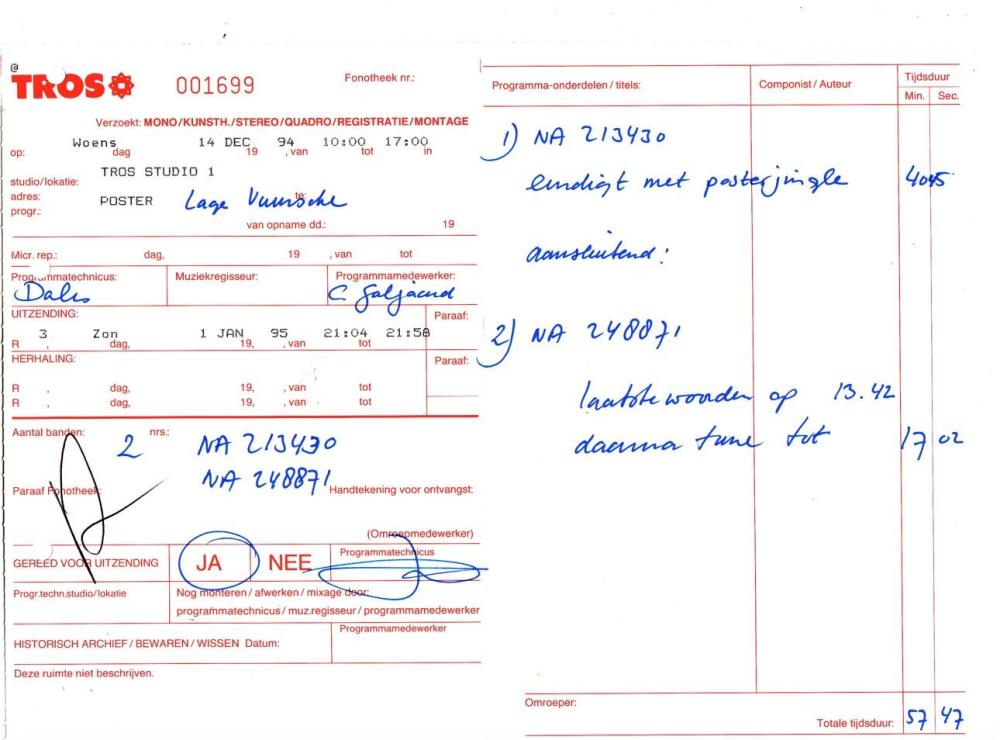 @
TROS
001699
Fonotheek nr.:
Verzoekt: MONO/KUNSTH./STEREO/QUADRO/REGISTRATIE/MONTAGE
Woens 14 DEC 94 10:00 17:00
op: dag 19 , van tot in
TROS STUDIO 1
studio/lokatie:
adres: te:
POSTER Lage Vuursche
progr.:
van opname dd.: 19
Micr. rep.: dag, 19 , van tot
Programmatechnicus: Muziekregisseur: Programmamedewerker:
Dales C. Galjaard
UITZENDING: Paraaf:
3 Zon 1 JAN 95 21:04 21:58
R , dag, 19, , van tot
HERHALING: Paraaf:
R , dag, 19, , van tot
R , dag, 19, , van tot
Aantal banden: 2 nrs.: NA 213430
NA 248871
Paraaf Fonotheek: Handtekening voor ontvangst:
(Omroepmedewerker)
GEREED VOOR UITZENDING JA NEE Programmatechnicus
Progr.techn.studio/lokatie Nog monteren/afwerken/mixage door:
programmatechnicus/muz.regisseur/programmamedewerker
Programmamedewerker
HISTORISCH ARCHIEF/BEWAREN/WISSEN Datum:
Deze ruimte niet beschrijven.
Programma-onderdelen/titels: Componist/Auteur Tijdsduur
Min. Sec.
1) NA 213430
eindigt met posterjingle 40 45
aansluitend:
2) NA 248871
laatste woorden op 13.42
daarna tune tot 17 02
Omroeper:
Totale tijdsduur: 57 47